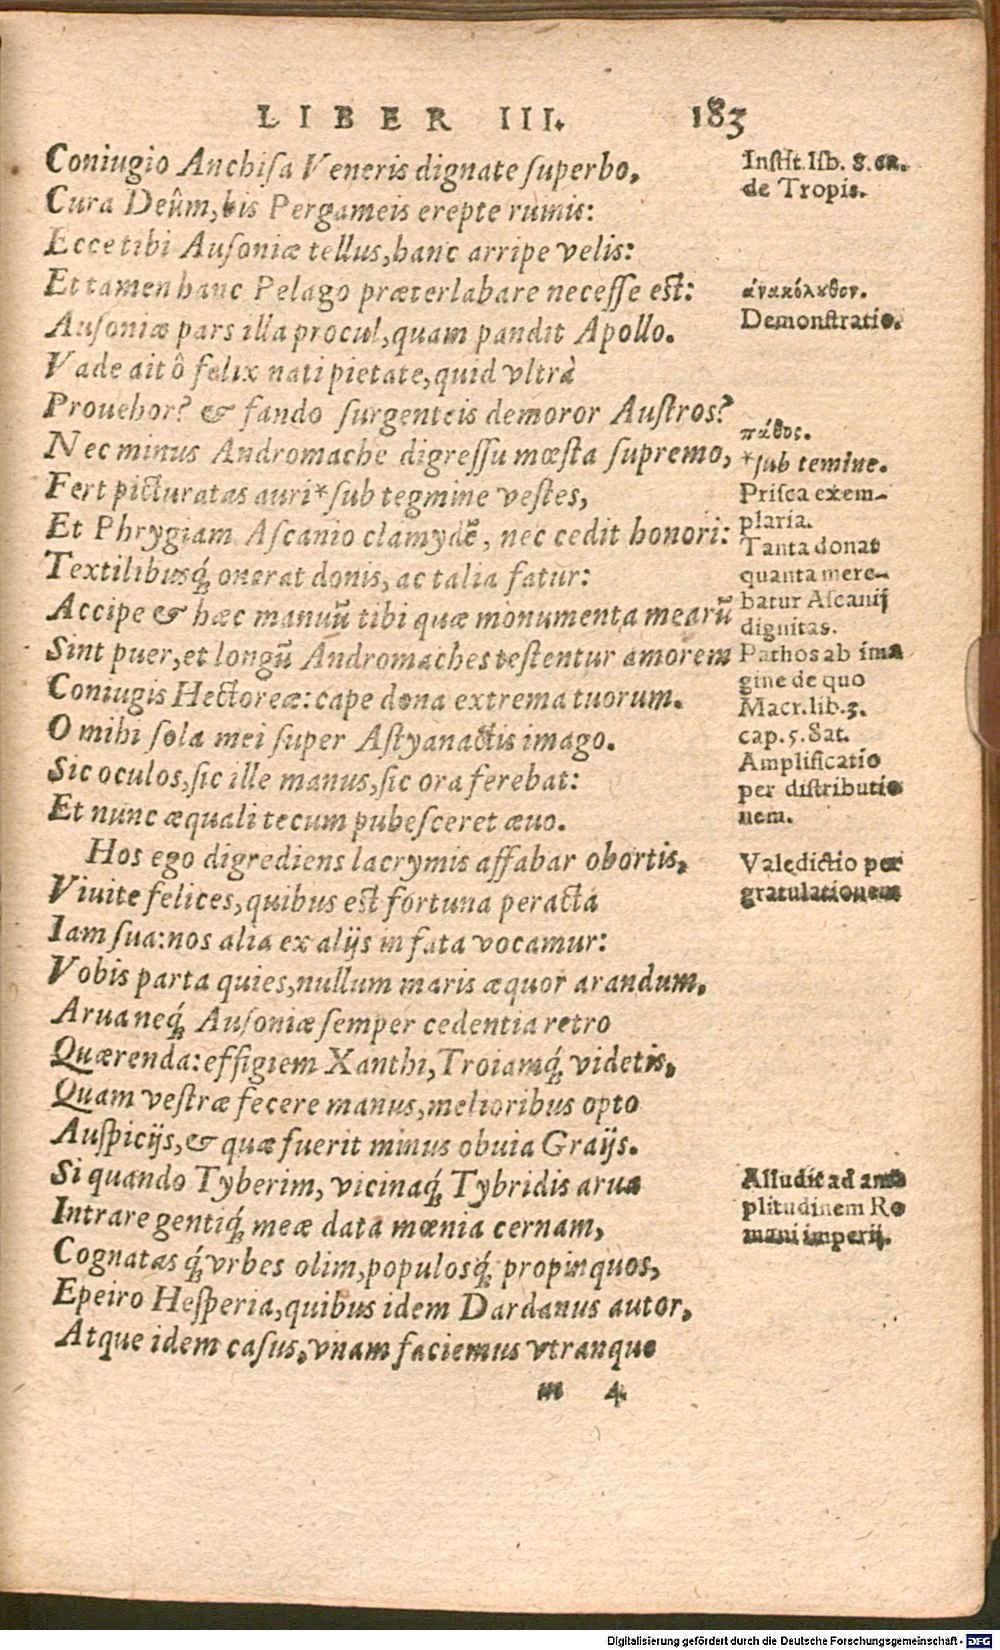 LIBER III. 183
Coniugio Anchiſa Veneris dignate ſuperbo,
Cura Deûm, bis Pergameis erepte ruinis:
Ecce tibi Auſoniæ tellus, hanc arripe velis:
Et tamen hanc Pelago præterlabare neceſſe est:
Auſoniæ pars illa procul, quam pandit Apollo.
Vade ait ô felix nati pietate, quid vltrà
Prouehor? & fando ſurgenteis demoror Auſtros?
Nec minus Andromache digreſſu mœsta ſupremo,
Fert picturatas auri *ſub tegmine veſtes,
Et Phrygiam Aſcanio clamydē, nec cedit honori:
Textilibusq́; onerat donis, ac talia fatur:
Accipe & hæc manuū tibi quæ monumenta mearū
Sint puer, et longū Andromaches teſtentur amorem
Coniugis Hectoreæ: cape dona extrema tuorum.
O mihi ſola mei ſuper Aſtyanactis imago.
Sic oculos, ſic ille manus, ſic ora ferebat:
Et nunc æquali tecum pubeſceret æuo.
Hos ego digrediens lacrymis affabar obortis,
Viuite felices, quibus est fortuna peracta
Iam ſua: nos alia ex alijs in fata vocamur:
Vobis parta quies, nullum maris æquor arandum,
Arua neq́; Auſoniæ ſemper cedentia retro
Quærenda: effigiem Xanthi, Troiamq́; videtis,
Quam veſtræ fecere manus, melioribus opto
Auſpicijs, & quæ fuerit minus obuia Graijs.
Si quando Tyberim, vicinaq́; Tybridis arua
Intrare gentiq́; meæ data mœnia cernam,
Cognatas q́; vrbes olim, populosq́; propinquos,
Epeiro Heſperia, quibus idem Dardanus autor,
Atque idem caſus, vnam faciemus vtranque
m 4
Inſtit. lib. 8. ca.
de Tropis.
ἀνακόλȣθον.
Demonſtratio.
πάθος.
*ſub temine.
Priſca exem-
plaria.
Tanta donat
quanta mere-
batur Aſcanij
dignitas.
Pathos ab ima
gine de quo
Macr. lib. 3.
cap. 5. Sat.
Amplificatio
per diſtributio
nem.
Valedictio per
gratulationem
Alludit ad am
plitudinem Ro
mani imperij.
Digitalisierung gefördert durch die Deutsche Forschungsgemeinschaft - DFG